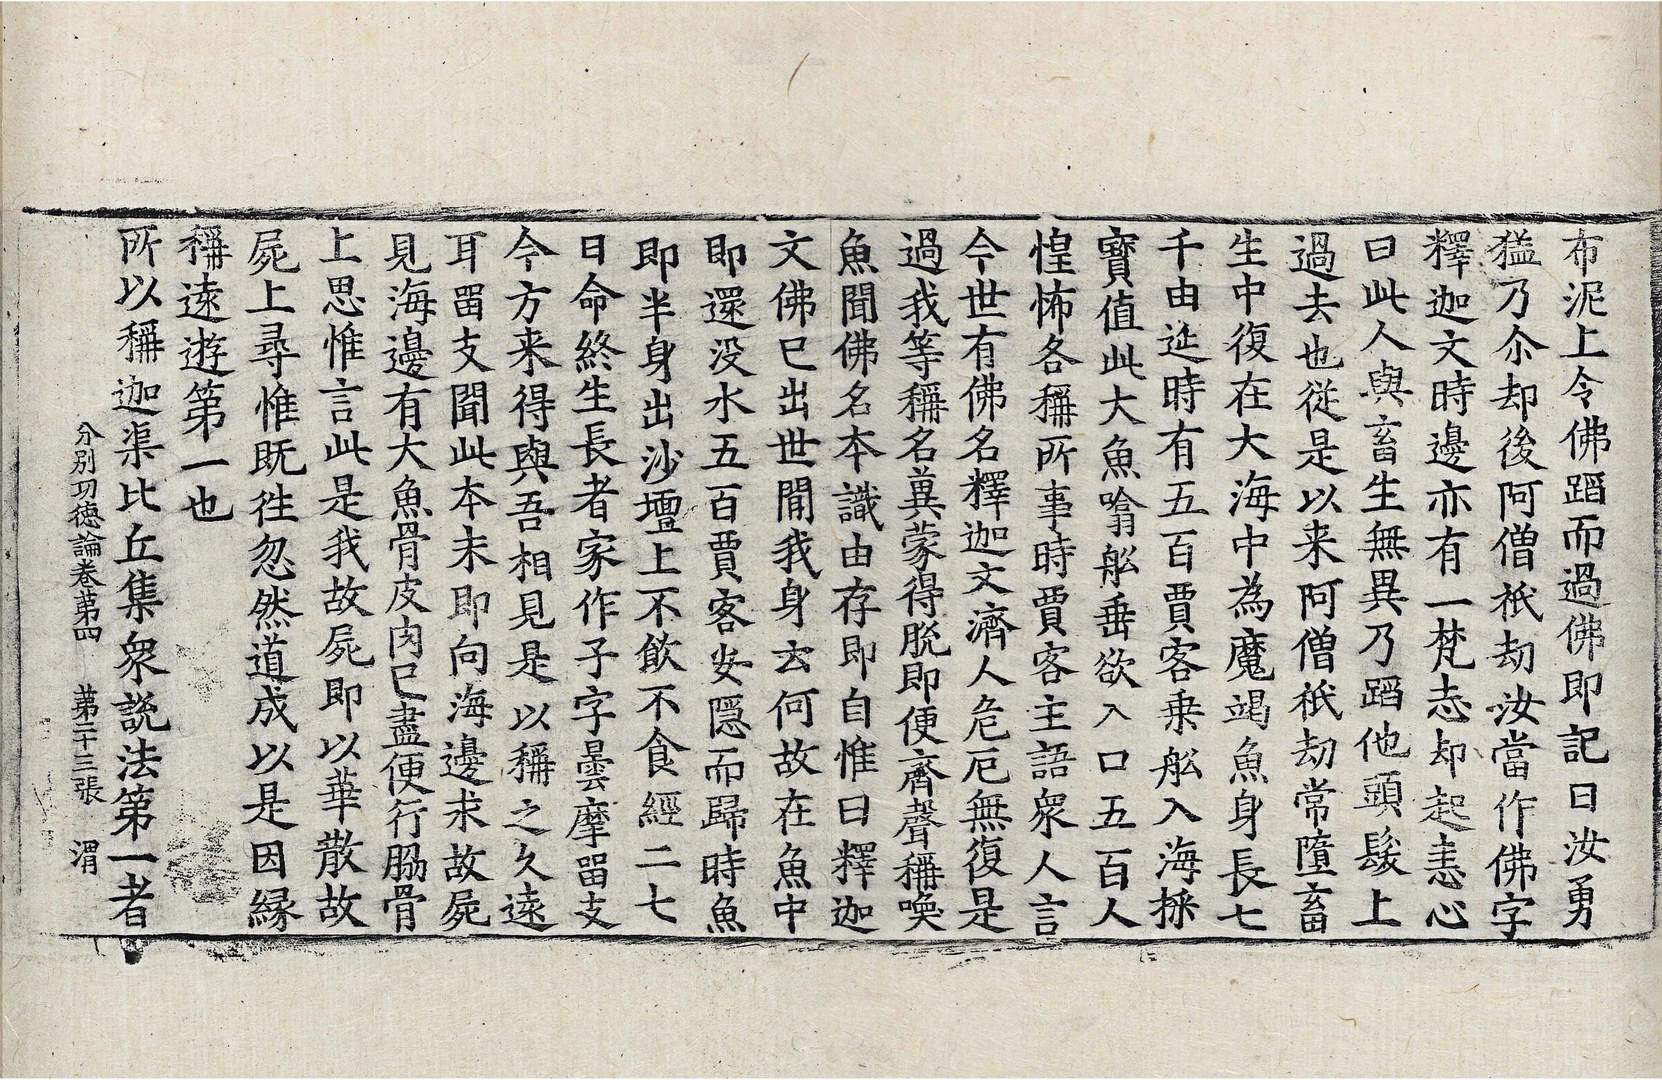 布泥上令佛蹈而過佛即記曰汝勇
猛乃尒却後阿僧祇劫汝當作佛字
釋迦文時邊亦有一梵志却起恚心
曰此人與畜生無異乃蹈他頭髮上
過去也從是以来阿僧祇劫常墮畜
生中復在大海中為魔竭魚身長七
千由延時有五百賈客乗舩入海採
寶值此大魚噏舩垂欲入口五百人
惶怖各稱所事時賈客主語衆人言
今世有佛名釋迦文濟人危厄無復是
過我等稱名兾蒙得脫即便齊聲稱喚
魚聞佛名本識由存即自惟曰釋迦
文佛已出世閒我身云何故在魚中
即還没水五百賈客安隱而歸時魚
即半身出沙壇上不飲不食經二七
日命終生長者家作子字曇摩留支
今方来得與吾相見是以稱之久遠
耳留支聞此本末即向海邊求故屍
見海邊有大魚骨皮肉已盡便行脇骨
上思惟言此是我故屍即以華散故
屍上尋惟既徃忽然道成以是因縁
稱遠遊第一也
所以稱迦渠比丘集衆說法第一者
分別功德論卷苐四　苐二十三張　渭